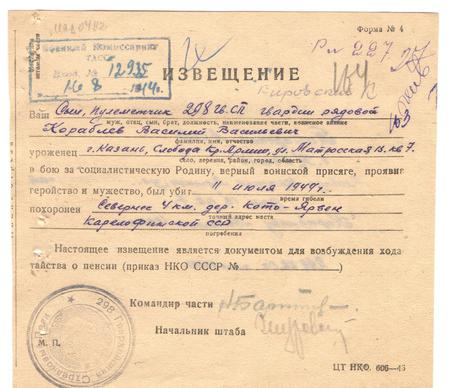 Форма № 4
Военный Комиссариат
ТАССР
Вход. № 12935
Рл 227
ИЗВЕЩЕНИЕ
Кировский
Ваш Сын, пулеметчик 298 гв. СП гвардии рядовой
муж, отец, сын, брат, должность, наименование части, воинское звание
Кораблев Василий Васильевич
фамилия, имя, отчество
уроженец г. Казань, Слобода Кр. Армии, ул. Матросская 13 кв 7.
село, деревня, район, город, область
в бою за социалистическую Родину, верный воинской присяге, проявив
геройство и мужество, был убит 11 июля 1944 г.
время гибели
похоронен Севернее 4 км. дер. Кото-Ярвен
точный адрес места
Карелофинской ССР
погребения
Настоящее извещение является документом для возбуждения хода-
тайства о пенсии (приказ НКО СССР № )
Командир части
Начальник штаба
М. П.
298 Гвардейский Стрелковый Полк
ЦТ НКО. 606—43